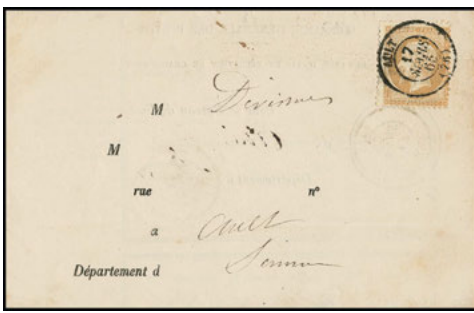 AULT
17
MARS
65
(76)
M Devismes
M
rue n°
a Ault
Département d Somme